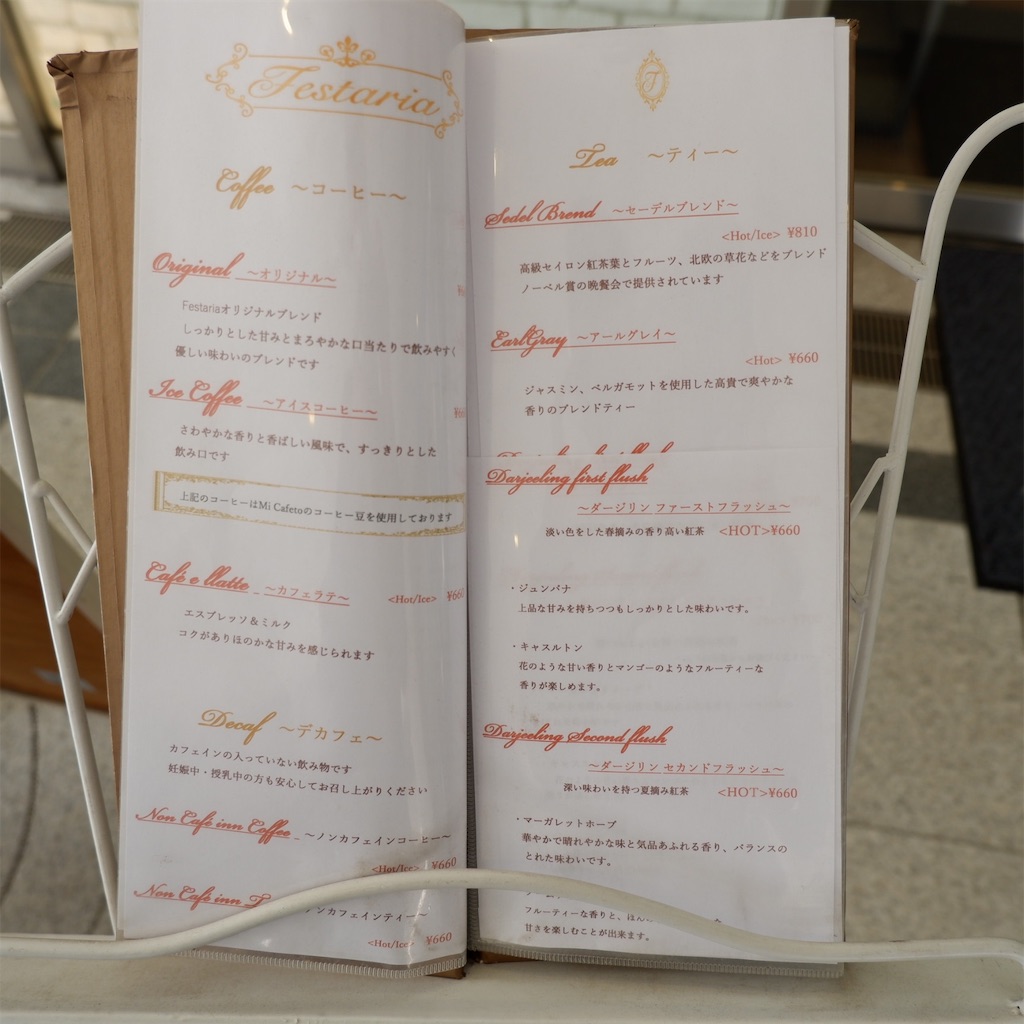 Testaria
Coffee ～コーヒー～
Original ～オリジナル～
Festariaオリジナルブレンド
しっかりとした甘みとまろやかな口当たりで飲みやすく
優しい味わいのブレンドです
Ice Coffee ～アイスコーヒー～
さわやかな香りと香ばしい風味で、すっきりとした
飲み口です
上記のコーヒーはMi Cafetoのコーヒー豆を使用しております
Café e llatte ～カフェラテ～ <Hot/Ice> ¥660
エスプレッソ＆ミルク
コクがありほのかな甘みを感じられます
Decaf ～デカフェ～
カフェインの入っていない飲み物です
妊娠中・授乳中の方も安心してお召し上がりください
Non Café inn Coffee ～ノンカフェインコーヒー～
<Hot/Ice> ¥660
Non Café inn T ノンカフェインティー～
<Hot/Ice> ¥660
T
Tea ～ティー～
Sedel Brend ～セーデルブレンド～
<Hot/Ice> ¥810
高級セイロン紅茶葉とフルーツ、北欧の草花などをブレンド
ノーベル賞の晩餐会で提供されています
EarlGray ～アールグレイ～
<Hot> ¥660
ジャスミン、ベルガモットを使用した高貴で爽やかな
香りのブレンドティー
Darjeeling first flush
～ダージリン ファーストフラッシュ～
淡い色をした春摘みの香り高い紅茶 <HOT>¥660
・ジュンパナ
上品な甘みを持ちつつもしっかりとした味わいです。
・キャスルトン
花のような甘い香りとマンゴーのようなフルーティーな
香りが楽しめます。
Darjeeling Second flush
～ダージリン セカンドフラッシュ～
深い味わいを持つ夏摘み紅茶 <HOT>¥660
・マーガレットホープ
華やかで晴れやかな味と気品あふれる香り、バランスの
とれた味わいです。
フルーティーな香りと、ほん
甘さを楽しむことが出来ます。